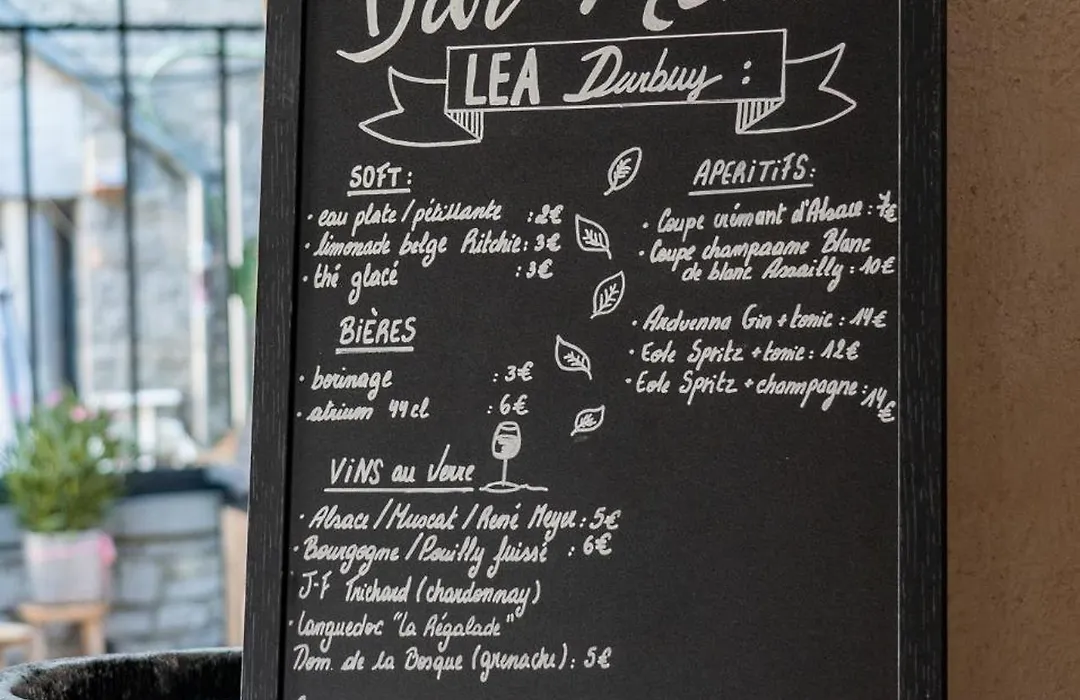 Bar
LEA Durbuy :
SOFT :
· eau plate / pétillante : 2€
· limonade belge Ritchie : 3€
· thé glacé : 3€
BIÈRES
· borinage : 3€
· atrium 44cl : 6€
ViNS au Verre
· Alsace / Muscat / René Meyer : 5€
· Bourgogne / Pouilly fuissé : 6€
J-F Trichard (chardonnay)
· Languedoc "La Régalade"
Dom. de la Bosque (grenache) : 5€
APERITIFS :
· Coupe crémant d'Alsace : 7€
· Coupe champagme Blanc
de blanc Assailly : 10€
· Arduenna Gin + tonic : 14€
· Eole Spritz + tonic : 12€
· Eole Spritz + champagne : 14€